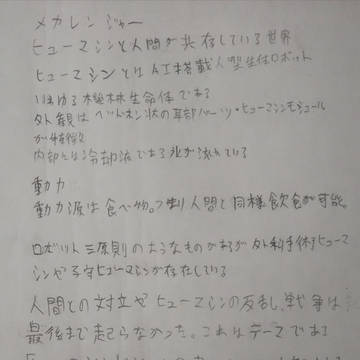 メカレンジャー
ヒューマシンと人間が共存している世界
ヒューマシンとはAI搭載人型生体ロボット
いわゆる機械生命体である
外観はヘッドホン状の耳部パーツ・ヒューマシンモジュール
が特徴
内部には冷却液である水が流れている
動力
動力源は食べ物。つまり人間と同様飲食が可能。
ロボット三原則のようなものがあるが外科手術ヒュー
マシンや子守ヒューマシンが存在している
人間との対立やヒューマシンの反乱、戦争は
最後まで起らなかった。これはテーマである